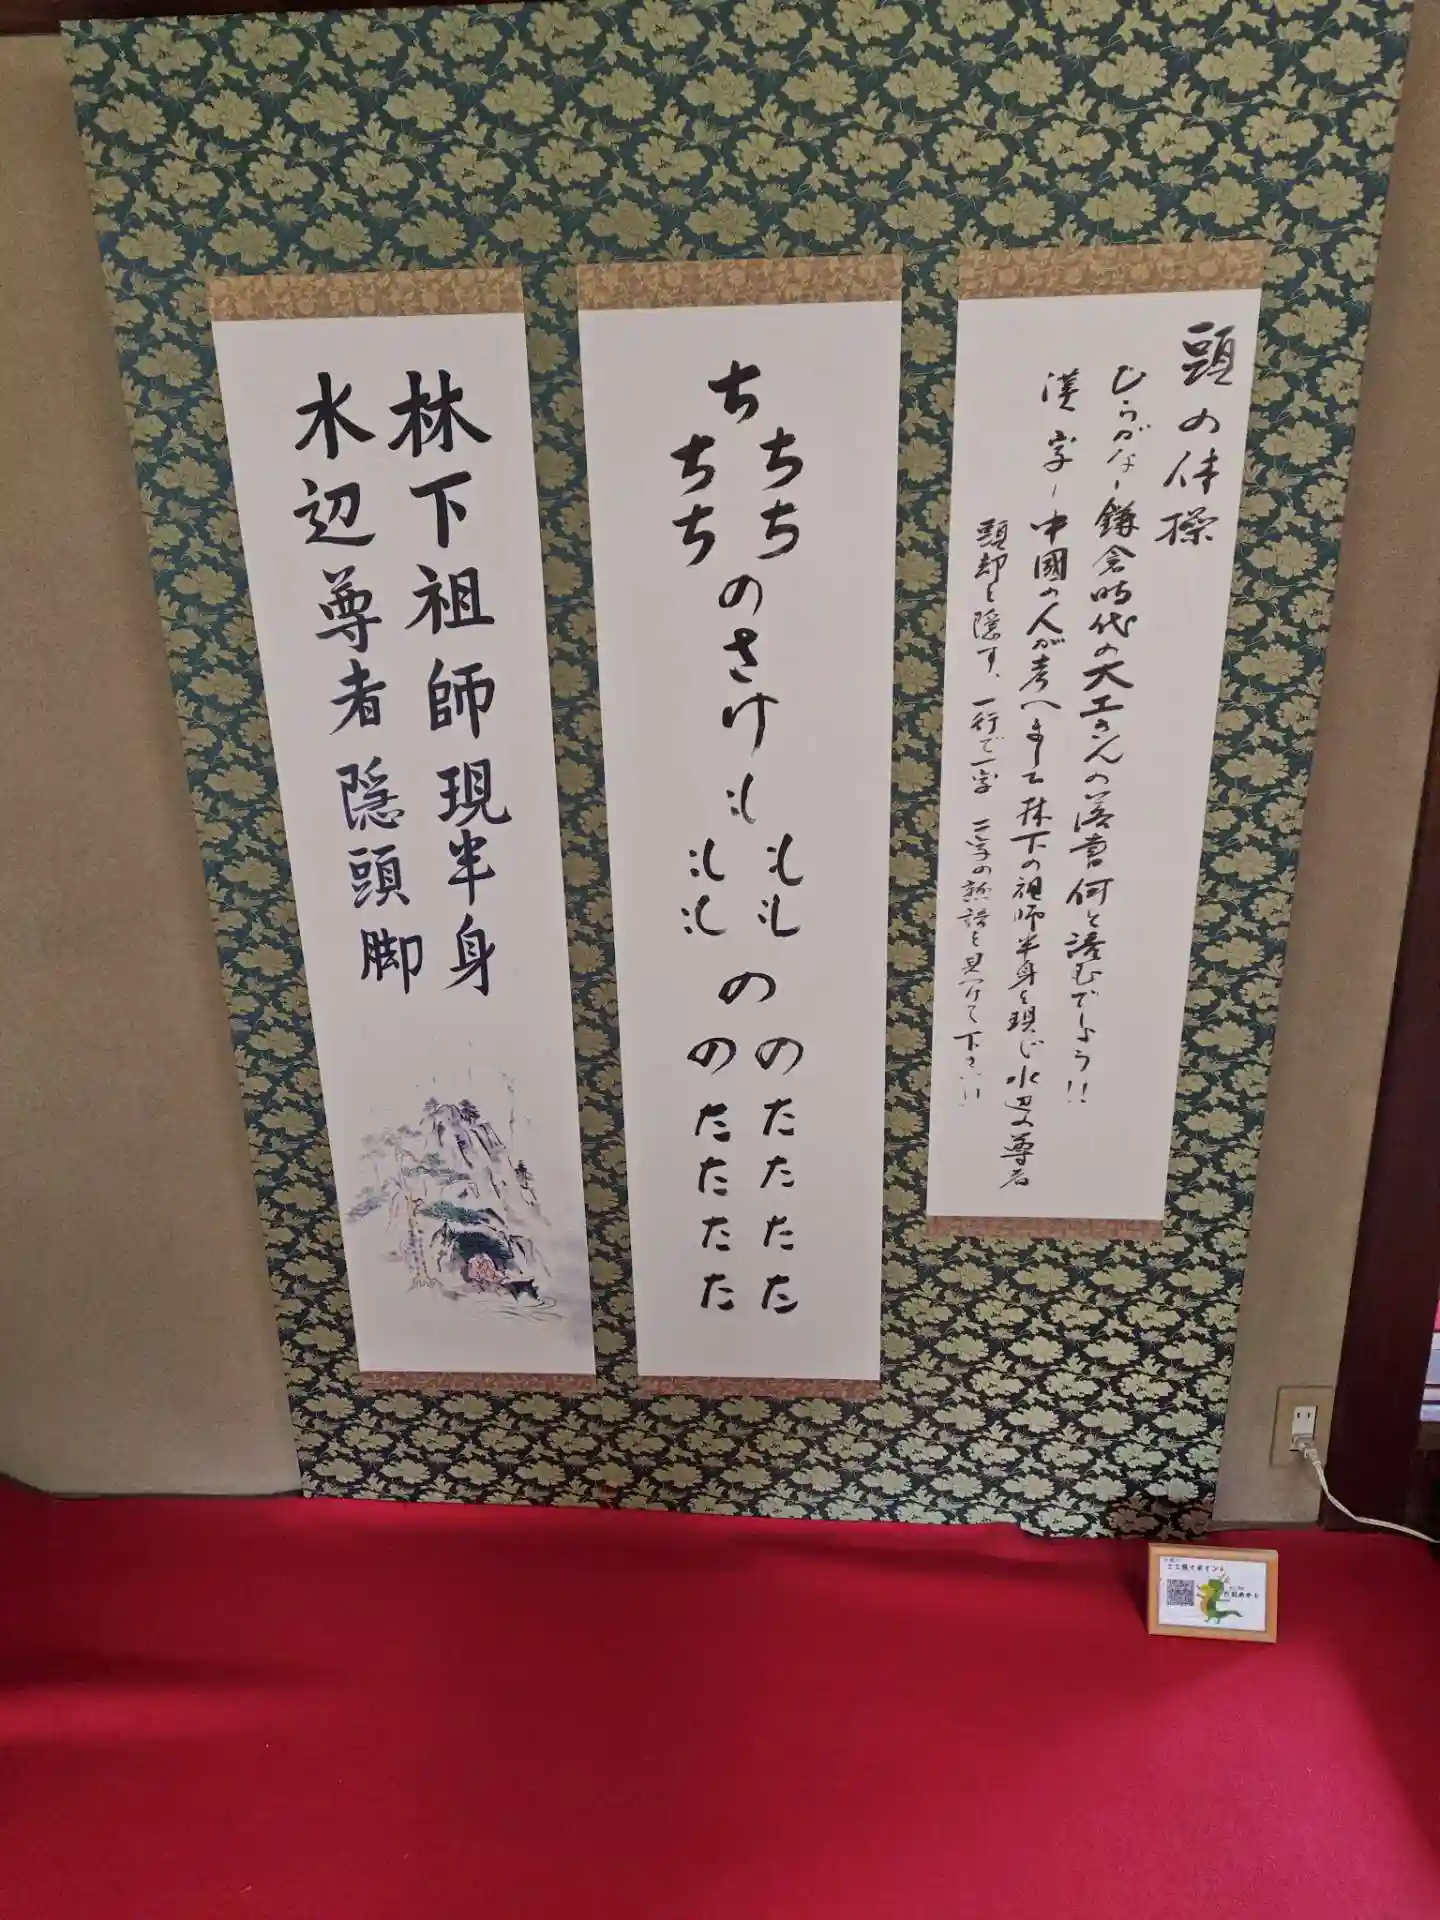 頭の体操
ひらがな－鎌倉時代の大工さんの落書何と読むでしょう!!
漢字－中國の人が考へまして林下の祖師半身を現じ水辺の尊者
頭却を隠す、一行で一字 二字の熟語を見つけて下さい
ち
ちち
ちち
の
さ
け
も
もも
もも
の
のの
たた
たた
たた
たた
林下祖師現半身
水辺尊者隠頭脚